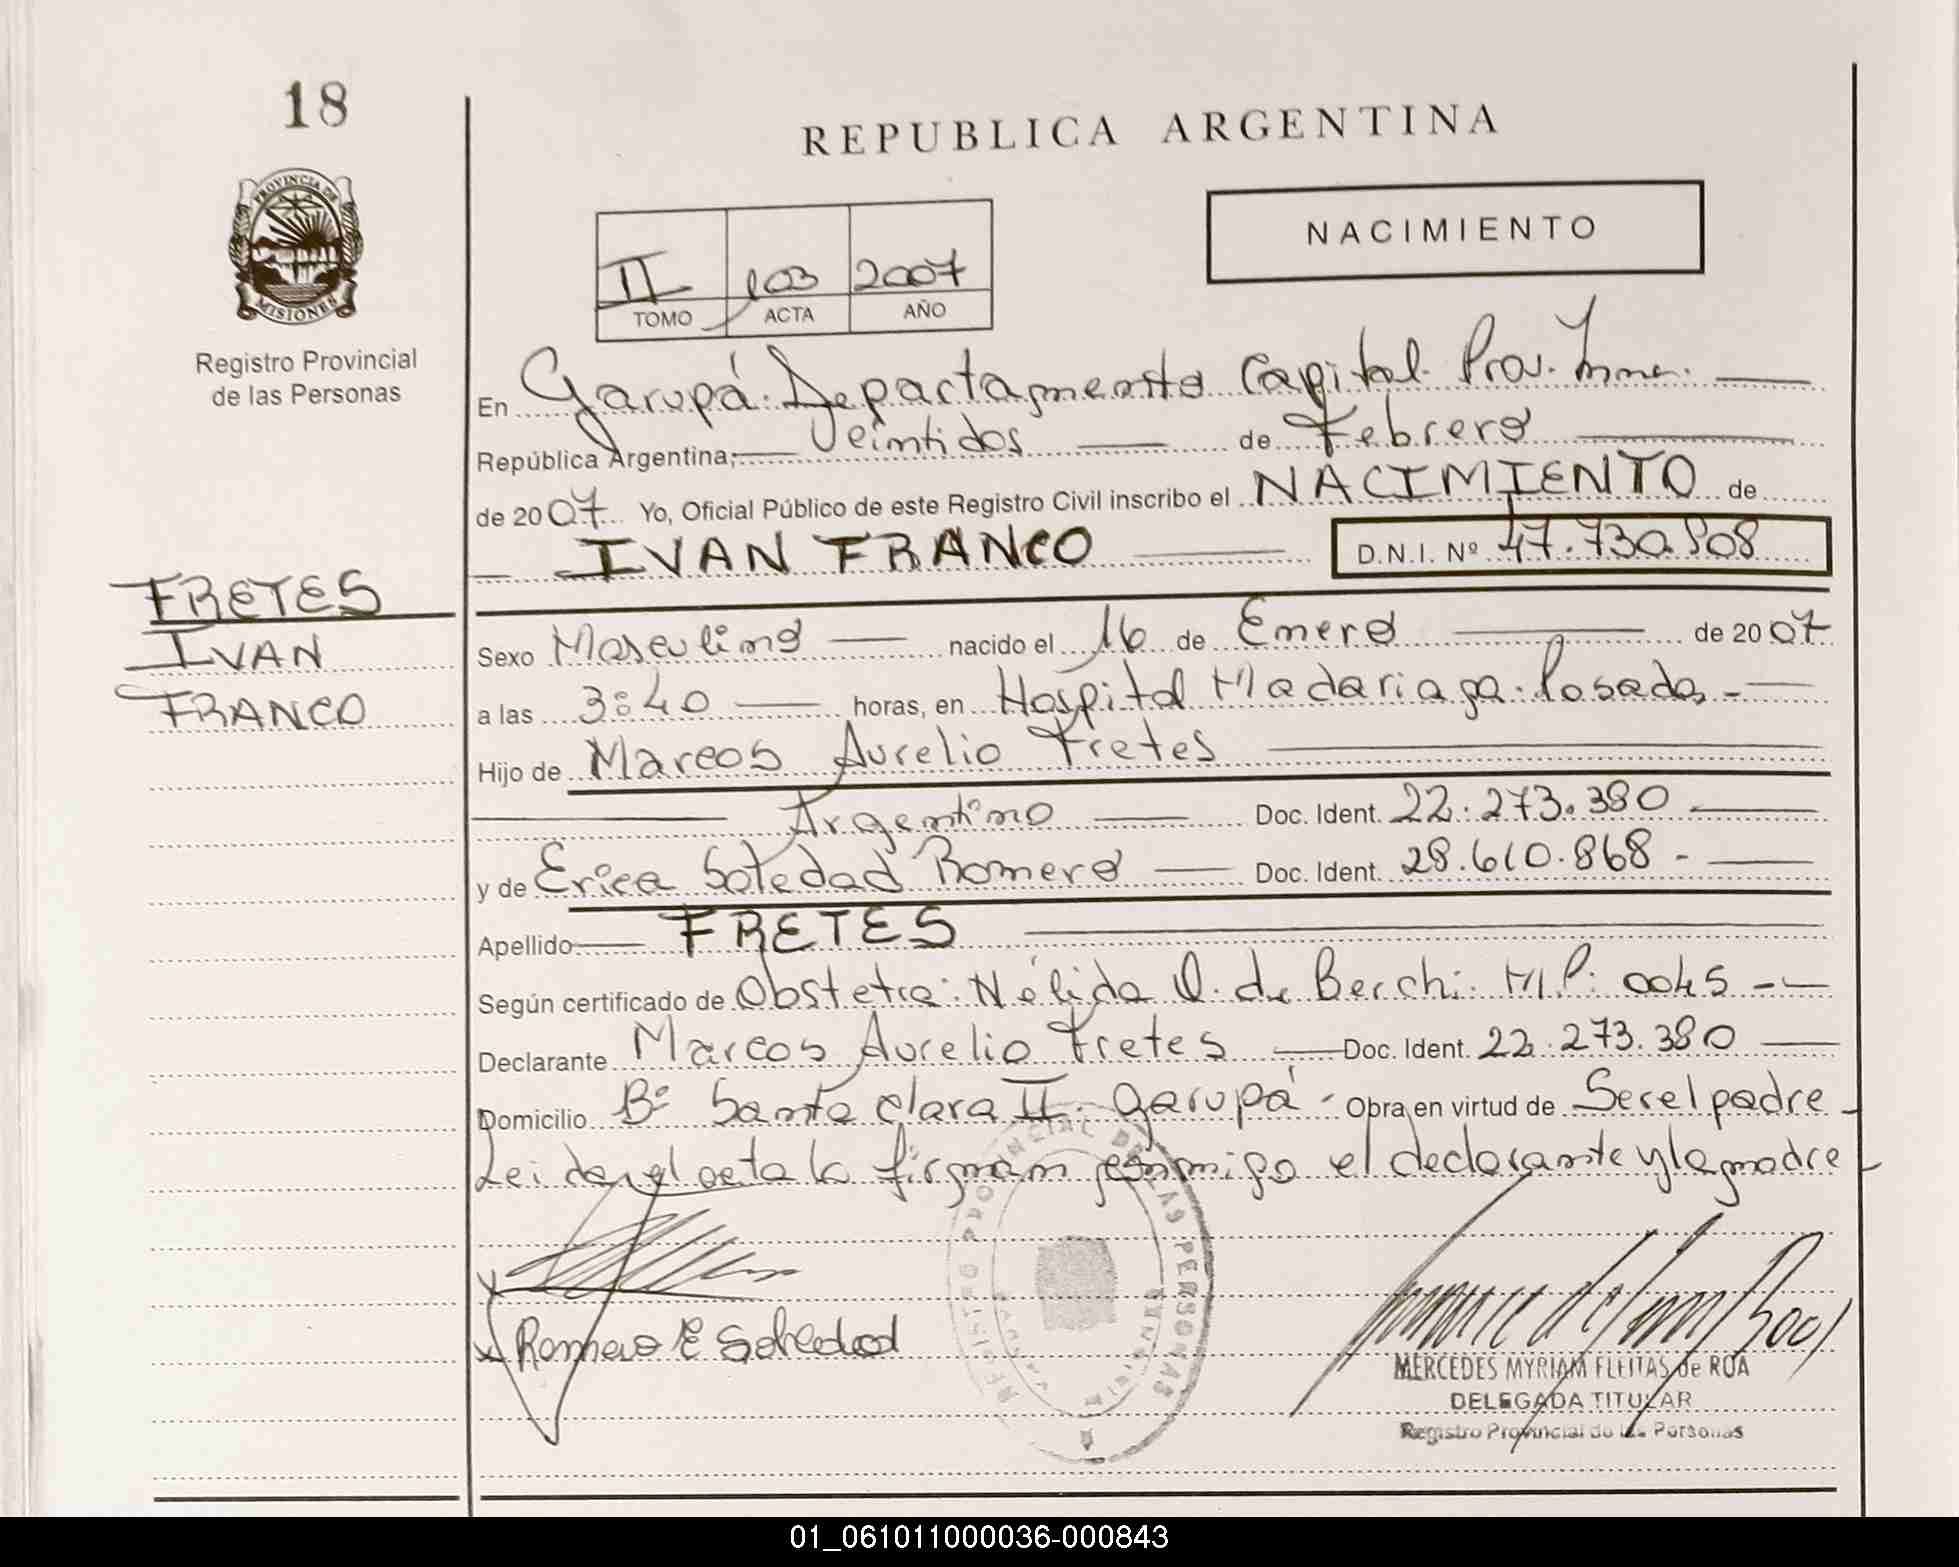 18
REPUBLICA ARGENTINA
PROVINCIA DE
MISIONES
NACIMIENTO
II 103 2007
TOMO ACTA AÑO
Registro Provincial
de las Personas
En Garupá. Departamento Capital. Prov. Mnes.
República Argentina, Veintidos de Febrero
de 2007 Yo, Oficial Público de este Registro Civil inscribo el NACIMIENTO de
IVAN FRANCO D.N.I. Nº 47.730.808
FRETES
IVAN
FRANCO
Sexo Masculino nacido el 16 de Enero de 2007
a las 3:40 horas, en Hospital Madariaga. Posadas -
Hijo de Marcos Aurelio Fretes
Argentino Doc. Ident. 22.273.380
y de Erica Soledad Romero Doc. Ident. 28.610.868 -
Apellido FRETES
Según certificado de Obstetra: Nélida O. de Berchi. M.P: 0045
Declarante Marcos Aurelio Fretes Doc. Ident. 22.273.380
Domicilio Bº Santa Clara II. Garupá - Obra en virtud de Ser el padre
Leida el acta la firman conmigo el declarante y la madre
Romero E Soledad
REGISTRO PROVINCIAL DE LAS PERSONAS
MERCEDES MYRIAM FLEITAS de ROA
DELEGADA TITULAR
Registro Provincial de las Personas
01_061011000036-000843